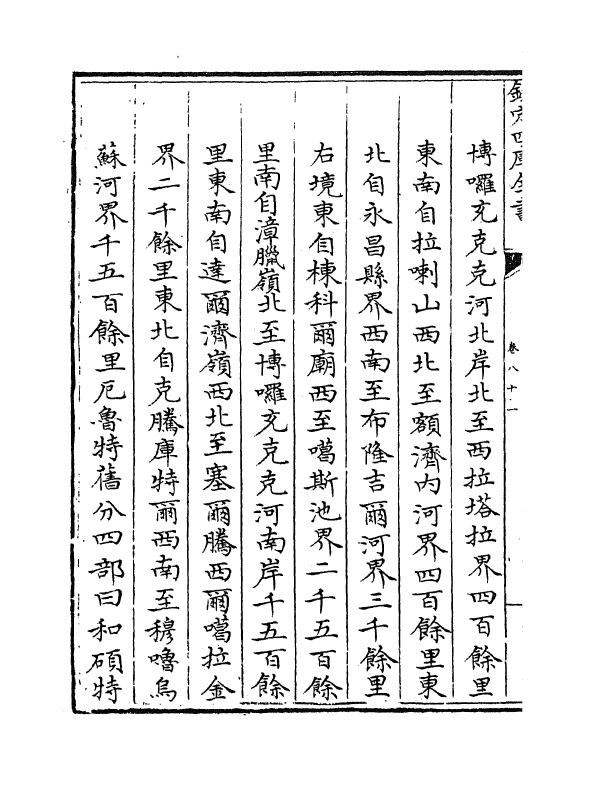 欽定四庫全書
卷八十一
博囉充克克河北岸北至西拉塔拉界四百餘里
東南自拉喇山西北至額濟内河界四百餘里東
北自永昌縣界西南至布隆吉爾河界三千餘里
右境東自棟科爾廟西至噶斯池界二千五百餘
里南自漳臘嶺北至博囉充克克河南岸千五百餘
里東南自達爾濟嶺西北至塞爾騰西爾噶拉金
界二千餘里東北自克騰庫特爾西南至穆嚕烏
蘇河界千五百餘里厄魯特舊分四部曰和碩特